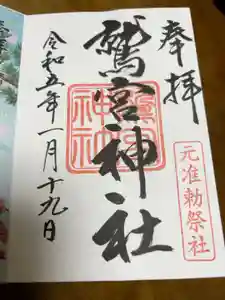 奉拝
元准勅祭社
鷲宮神社
鷲宮神社
令和五年一月十九日